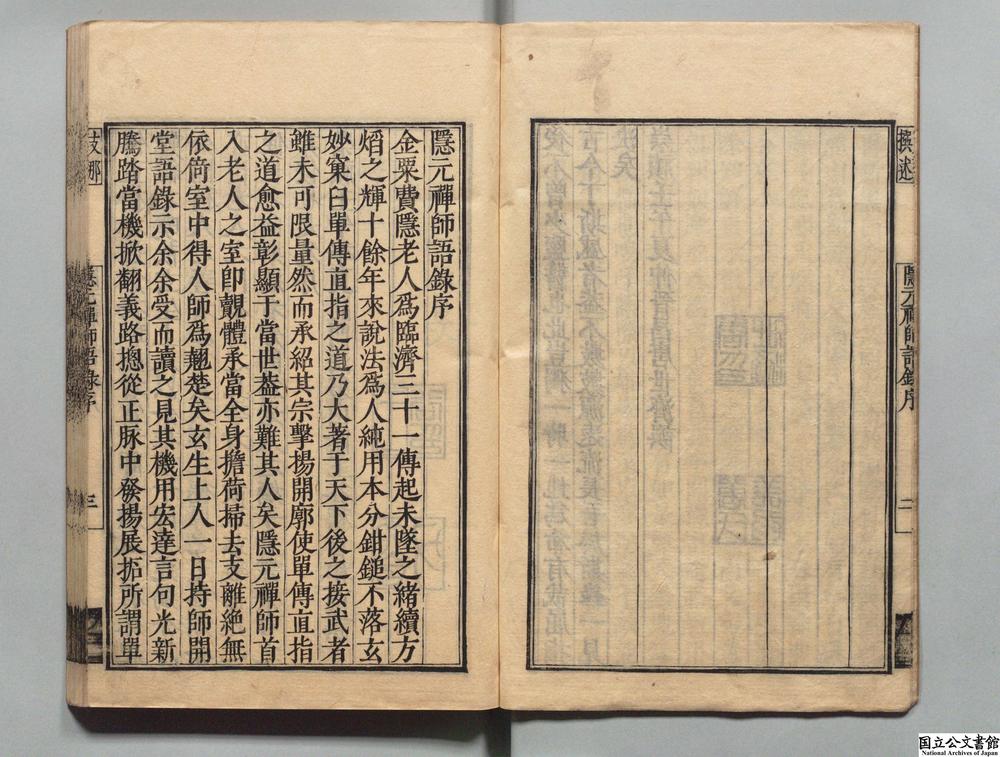 撰述
隱元禪師語錄序
二
隱元禪師語錄序
金粟費隱老人為臨濟三十一傳起未墜之緒續方
熖之輝十餘年來說法為人純用本分鉗鎚不落玄
妙窠臼單傳直指之道乃大著于天下後之接武者
雖未可限量然而承紹其宗擊揚開廓使單傳直指
之道愈益彰顯于當世葢亦難其人矣隱元禪師首
入老人之室卽覿體承當全身擔荷掃去支離絶無
依倚室中得人師為翹楚矣玄生上人一日持師開
堂語錄示余余受而讀之見其機用宏達言句光新
騰踏當機掀翻義路摠從正脉中發揚展拓所謂單
隱元禪師語錄序
三
国立公文書館
National Archives of Japan